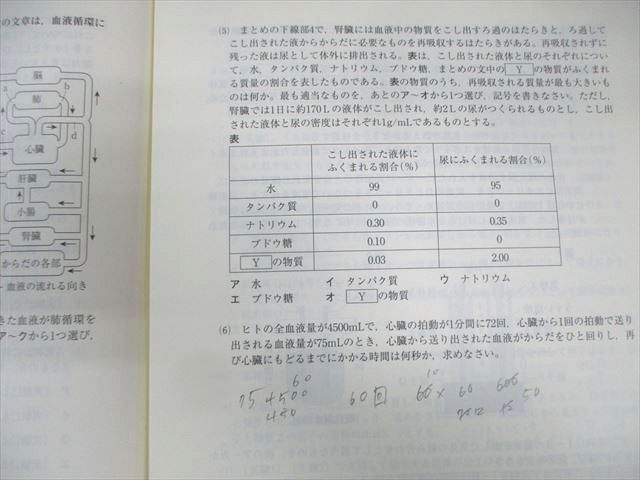 の文章は，血液循環に
脳
a
b
肺
c
d
心臓
肝臓
小腸
腎臓
からだの各部
血液の流れる向き
きた血液が肺循環を
ア～クから1つ選び，
(5) まとめの下線部4で，腎臓には血液中の物質をこし出すろ過のはたらきと，ろ過して
こし出された液からからだに必要なものを再吸収するはたらきがある。再吸収されずに
残った液は尿として体外に排出される。表は，こし出された液体と尿のそれぞれについ
て，水，タンパク質，ナトリウム，ブドウ糖，まとめの文中の Y の物質がふくまれ
る質量の割合を表したものである。表の物質のうち，再吸収される質量が最も大きいも
のは何か。最も適当なものを，あとのア～オから1つ選び，記号を書きなさい。ただし，
腎臓では1日に約170Lの液体がこし出され，約2Lの尿がつくられるものとし，こし出
された液体と尿の密度はそれぞれ1g/mLであるものとする。
表
こし出された液体に
ふくまれる割合(%) 尿にふくまれる割合(%)
水 99 95
タンパク質 0 0
ナトリウム 0.30 0.35
ブドウ糖 0.10 0
Y の物質 0.03 2.00
ア 水 イ タンパク質 ウ ナトリウム
エ ブドウ糖 オ Y の物質
(6) ヒトの全血液量が4500mLで，心臓の拍動が1分間に72回，心臓から1回の拍動で送り
出される血液量が75mLのとき，心臓から送り出された血液がからだをひと回りし，再
び心臓にもどるまでにかかる時間は何秒か，求めなさい。
60
75 4500 60回 60 × 60 600 50
450
10